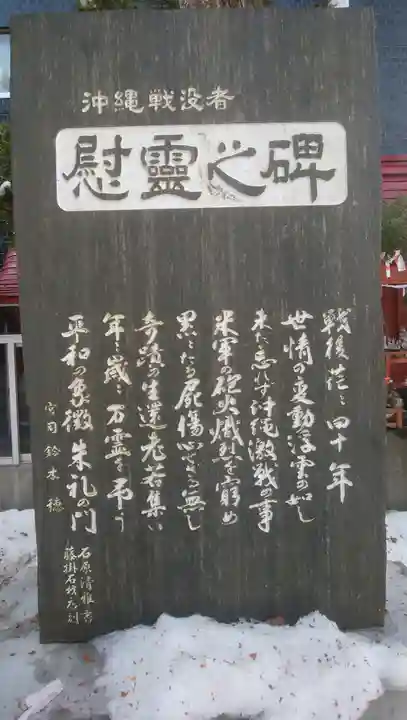 沖縄戦没者
慰靈之碑
戦後茫々四十年
世情の変動浮雲の如し
未だ忘れず沖縄激戦の事
米軍の砲火熾烈を窮め
累々たる屍傷心せざる無し
奇蹟の生還老若集い
年々歳々万霊を弔う
平和の象徴朱礼の門
宮司 鈴木 穂
石原清雅書
藤掛石材店刻